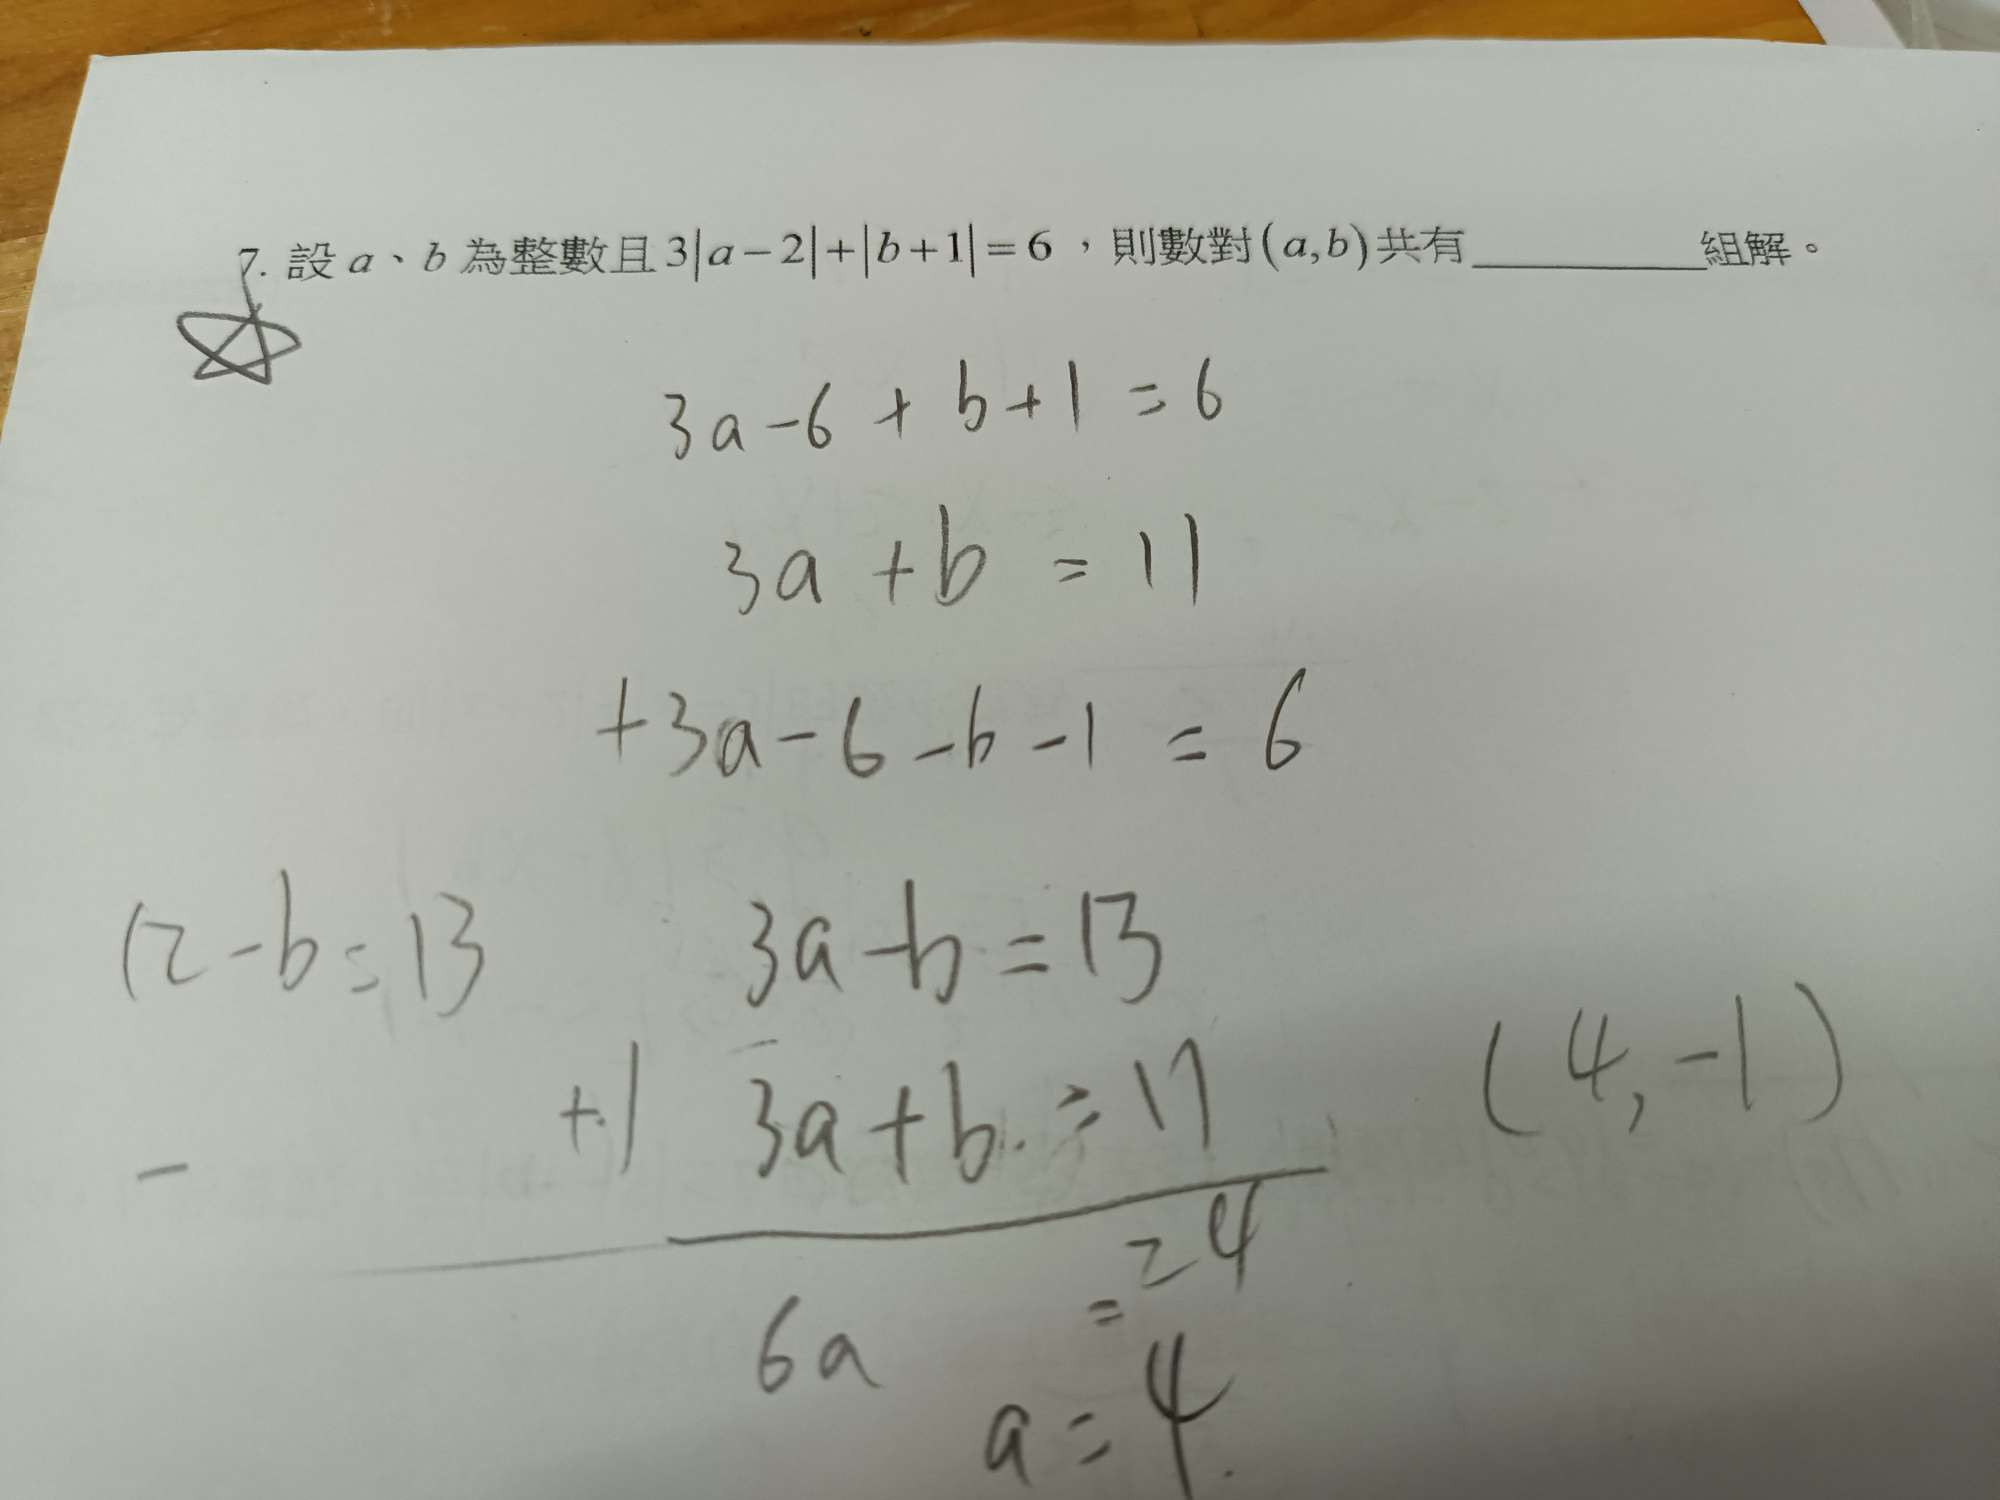 7. 設 a、b 為整數且 3|a-2|+|b+1|=6，則數對(a,b)共有________組解。
3a-6+b+1=6
3a+b=11
+3a-6-b-1=6
12-b=13
3a-b=13
+) 3a+b=11
-
(4,-1)
6a=24
a=4